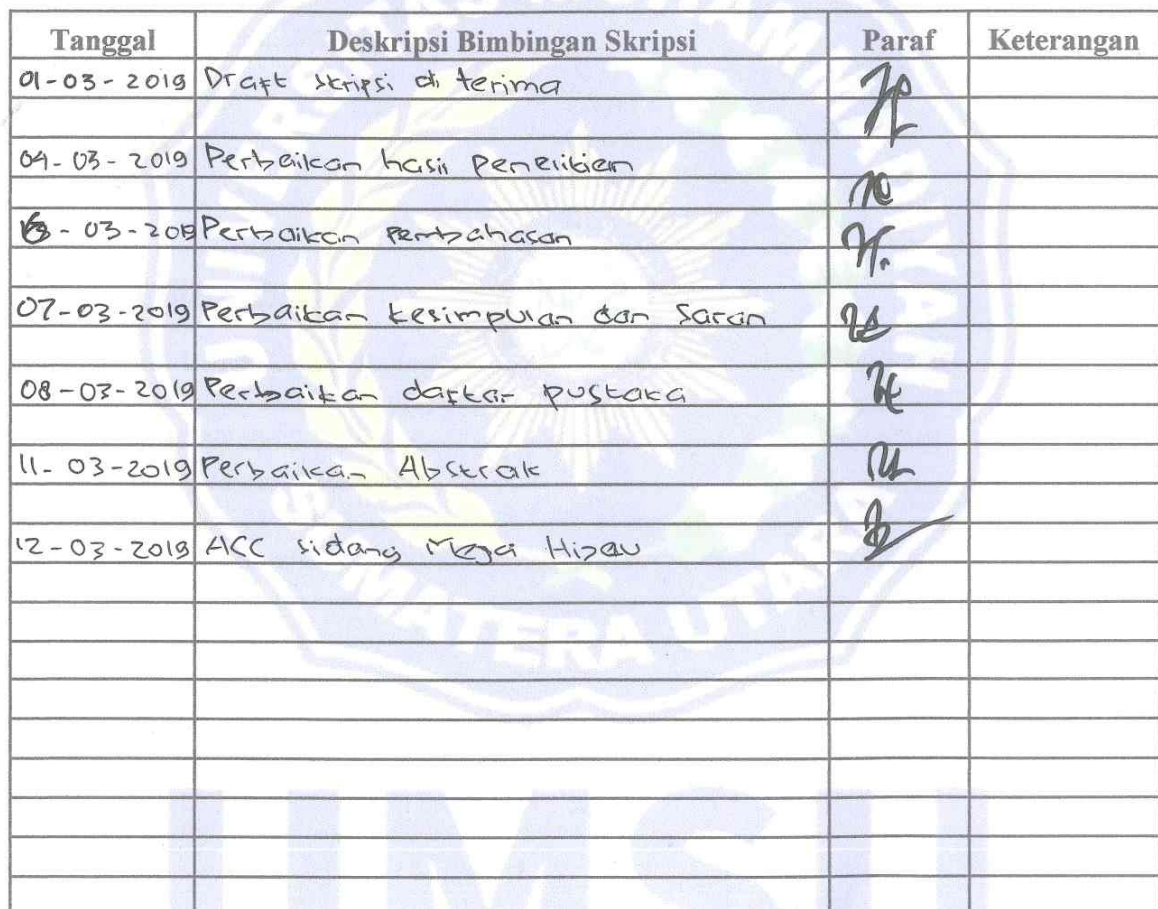 Tanggal Deskripsi Bimbingan Skripsi Paraf Keterangan
01-03-2019 Draft skripsi di terima
04-03-2019 Perbaikan hasil penelitian
-03-2019 Perbaikan Pembahasan
07-03-2019 Perbaikan kesimpulan dan Saran
08-03-2019 Perbaikan daftar pustaka
11-03-2019 Perbaikan Abstrak
12-03-2019 ACC sidang Meja Hijau
SUMATERA UTARA
UMSU